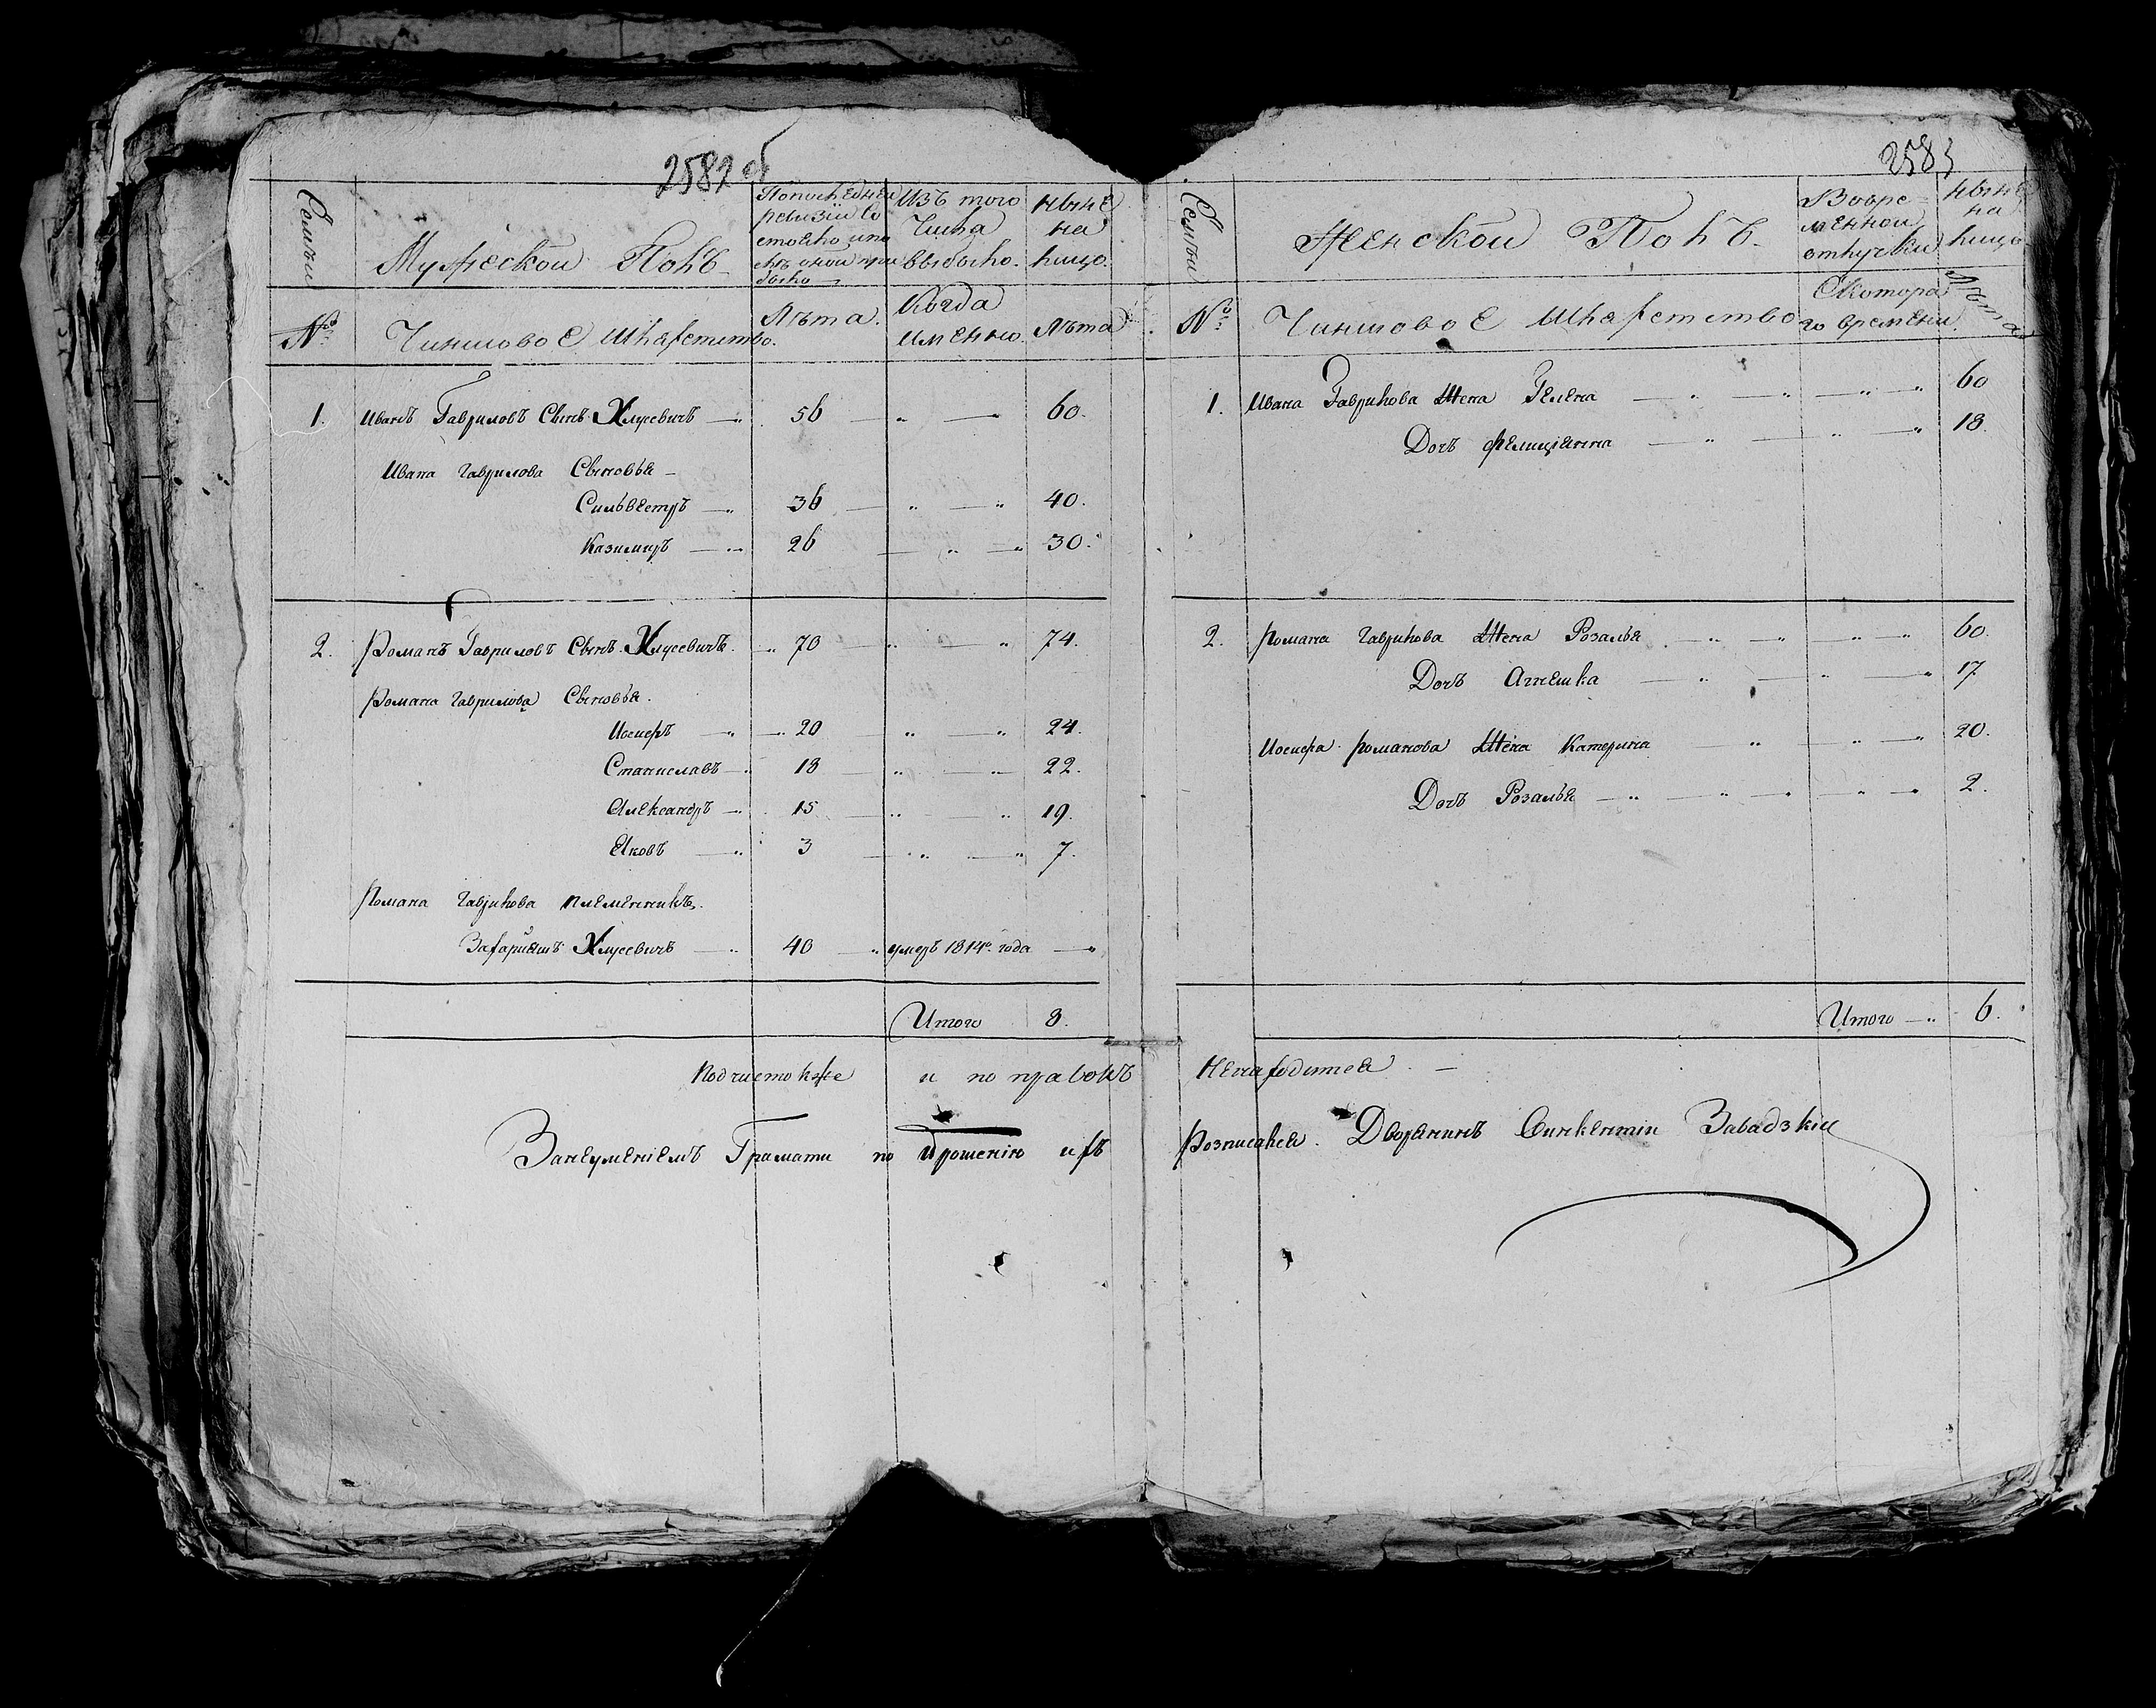 2582 об
Семьи
Мужеской Полъ
По последней
ревизіи со
стояло и по
слѣ оной при
было
Изъ того
Числа
выбыло.
ныне
на
лицо.
№
Чиншовое Шляхетство.
Лѣта.
Когда
именно.
Лѣта
1. Иванъ Гавриловъ Сынъ Хлусевичъ 56 60.
Ивана Гаврилова Сыновья
Сильвестръ 36 40.
Казимиръ 26 30.
2. Романъ Гавриловъ Сынъ Хлусевичъ. 70 74.
Романа Гаврилова Сыновья.
Иосифъ 20 24.
Станиславъ 18 22.
Александръ 15 19.
Яковъ 3 7.
Романа Гаврилова племянникъ.
Захаріяшъ Хлусевичъ 40 умеръ 1814го года
Итого 8.
2583
Семьи
Женской Полъ.
Вовре-
менной
отлучки
ныне
на
лицо
№
Чиншовое Шляхетство
Скотора
го времени.
Лѣта
1. Ивана Гаврилова Жена Гелена 60
Дочь Фелиціянна 18.
2. Романа Гаврилова Жена Розалья 60.
Дочь Агнешка 17
Иосифа Романова Жена Катерина 20.
Дочь Розалья 2.
Итого 6.
Подчистокже и поправокъ Ненаходится.
Занеуменіемъ Грамати по Прошенію ихъ Розписался. Дворянинъ Винкентии Завадзкіи